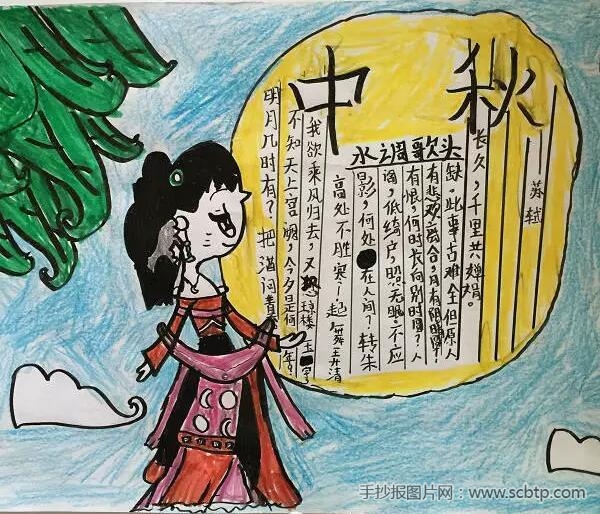 中 秋
水调歌头
苏轼
明月几时有？把酒问青
不知天上宫阙，今夕是何年？
我欲乘风归去，又 琼楼玉宇
高处不胜寒！起舞弄清
影，何处在人间？转朱
阁，低绮户，照无眠。不应
有恨，何时长向别时圆？人
有悲欢离合，月有阴晴圆
缺，此事古难全但愿人
长久，千里共婵娟。
手抄报图片网：www.scbtp.com